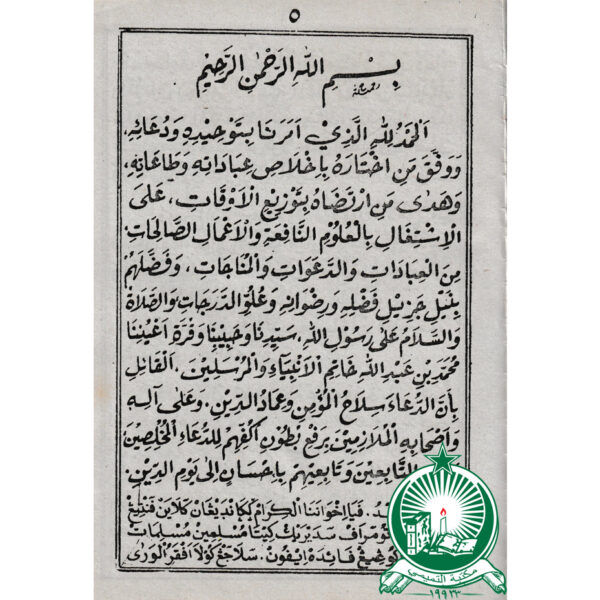 ٥
بِسْمِ اللهِ الرَّحْمٰنِ الرَّحِيْمِ
اَلْحَمْدُ لِلّٰهِ الَّذِيْ اَمَرَنَا بِتَوْحِيْدِهِ وَدُعَائِهِ،
وَوَفَّقَ مَنِ اخْتَارَهُ بِاِخْلَاصِ عِبَادَاتِهِ وَطَاعَاتِهِ،
وَهَدٰى مَنِ ارْتَضَاهُ بِتَوْزِيْعِ الْاَوْقَاتِ، عَلَى
الْاِشْتِغَالِ بِالْعُلُوْمِ النَّافِعَةِ وَالْاَعْمَالِ الصَّالِحَاتِ
مِنَ الْعِبَادَاتِ وَالدَّعَوَاتِ وَالْمُنَاجَاتِ، وَفَضَّلَهُمْ
بِنَيْلِ جَزِيْلِ فَضْلِهِ وَرِضْوَانِهِ وَعُلُوِّ الدَّرَجَاتِ وَالصَّلَاةُ
وَالسَّلَامُ عَلٰى رَسُوْلِ اللهِ، سَيِّدِنَا وَحَبِيْبِنَا وَقُرَّةِ اَعْيُنِنَا
مُحَمَّدِ بْنِ عَبْدِ اللهِ خَاتِمِ الْاَنْبِيَاءِ وَالْمُرْسَلِيْنَ، اَلْقَائِلِ
بِاَنَّ الدُّعَاءَ سِلَاحُ الْمُؤْمِنِ وَعِمَادُ الدِّيْنِ. وَعَلٰى آلِهِ
وَاَصْحَابِهِ الْمُلَازِمِيْنَ بِرَفْعِ بُطُوْنِ اَكُفِّهِمْ لِلدُّعَاءِ الْمُخْلِصِيْنَ
التَّابِعِيْنَ وَتَابِعِيْهِمْ بِاِحْسَانٍ اِلٰى يَوْمِ الدِّيْنِ.
فَيَا اِخْوَانَنَا الْكِرَامُ
سَدَيَرَيْكْ كِيْتَا مُسْلِمِيْنَ مُسْلِمَاتْ
فَائِدَهْ اِيْفُوْنْ. سَلَاجَڠْ كَوُلَا اَفْقَرُ الْوَرٰى
مكتبة التميمي
١٩٩٣